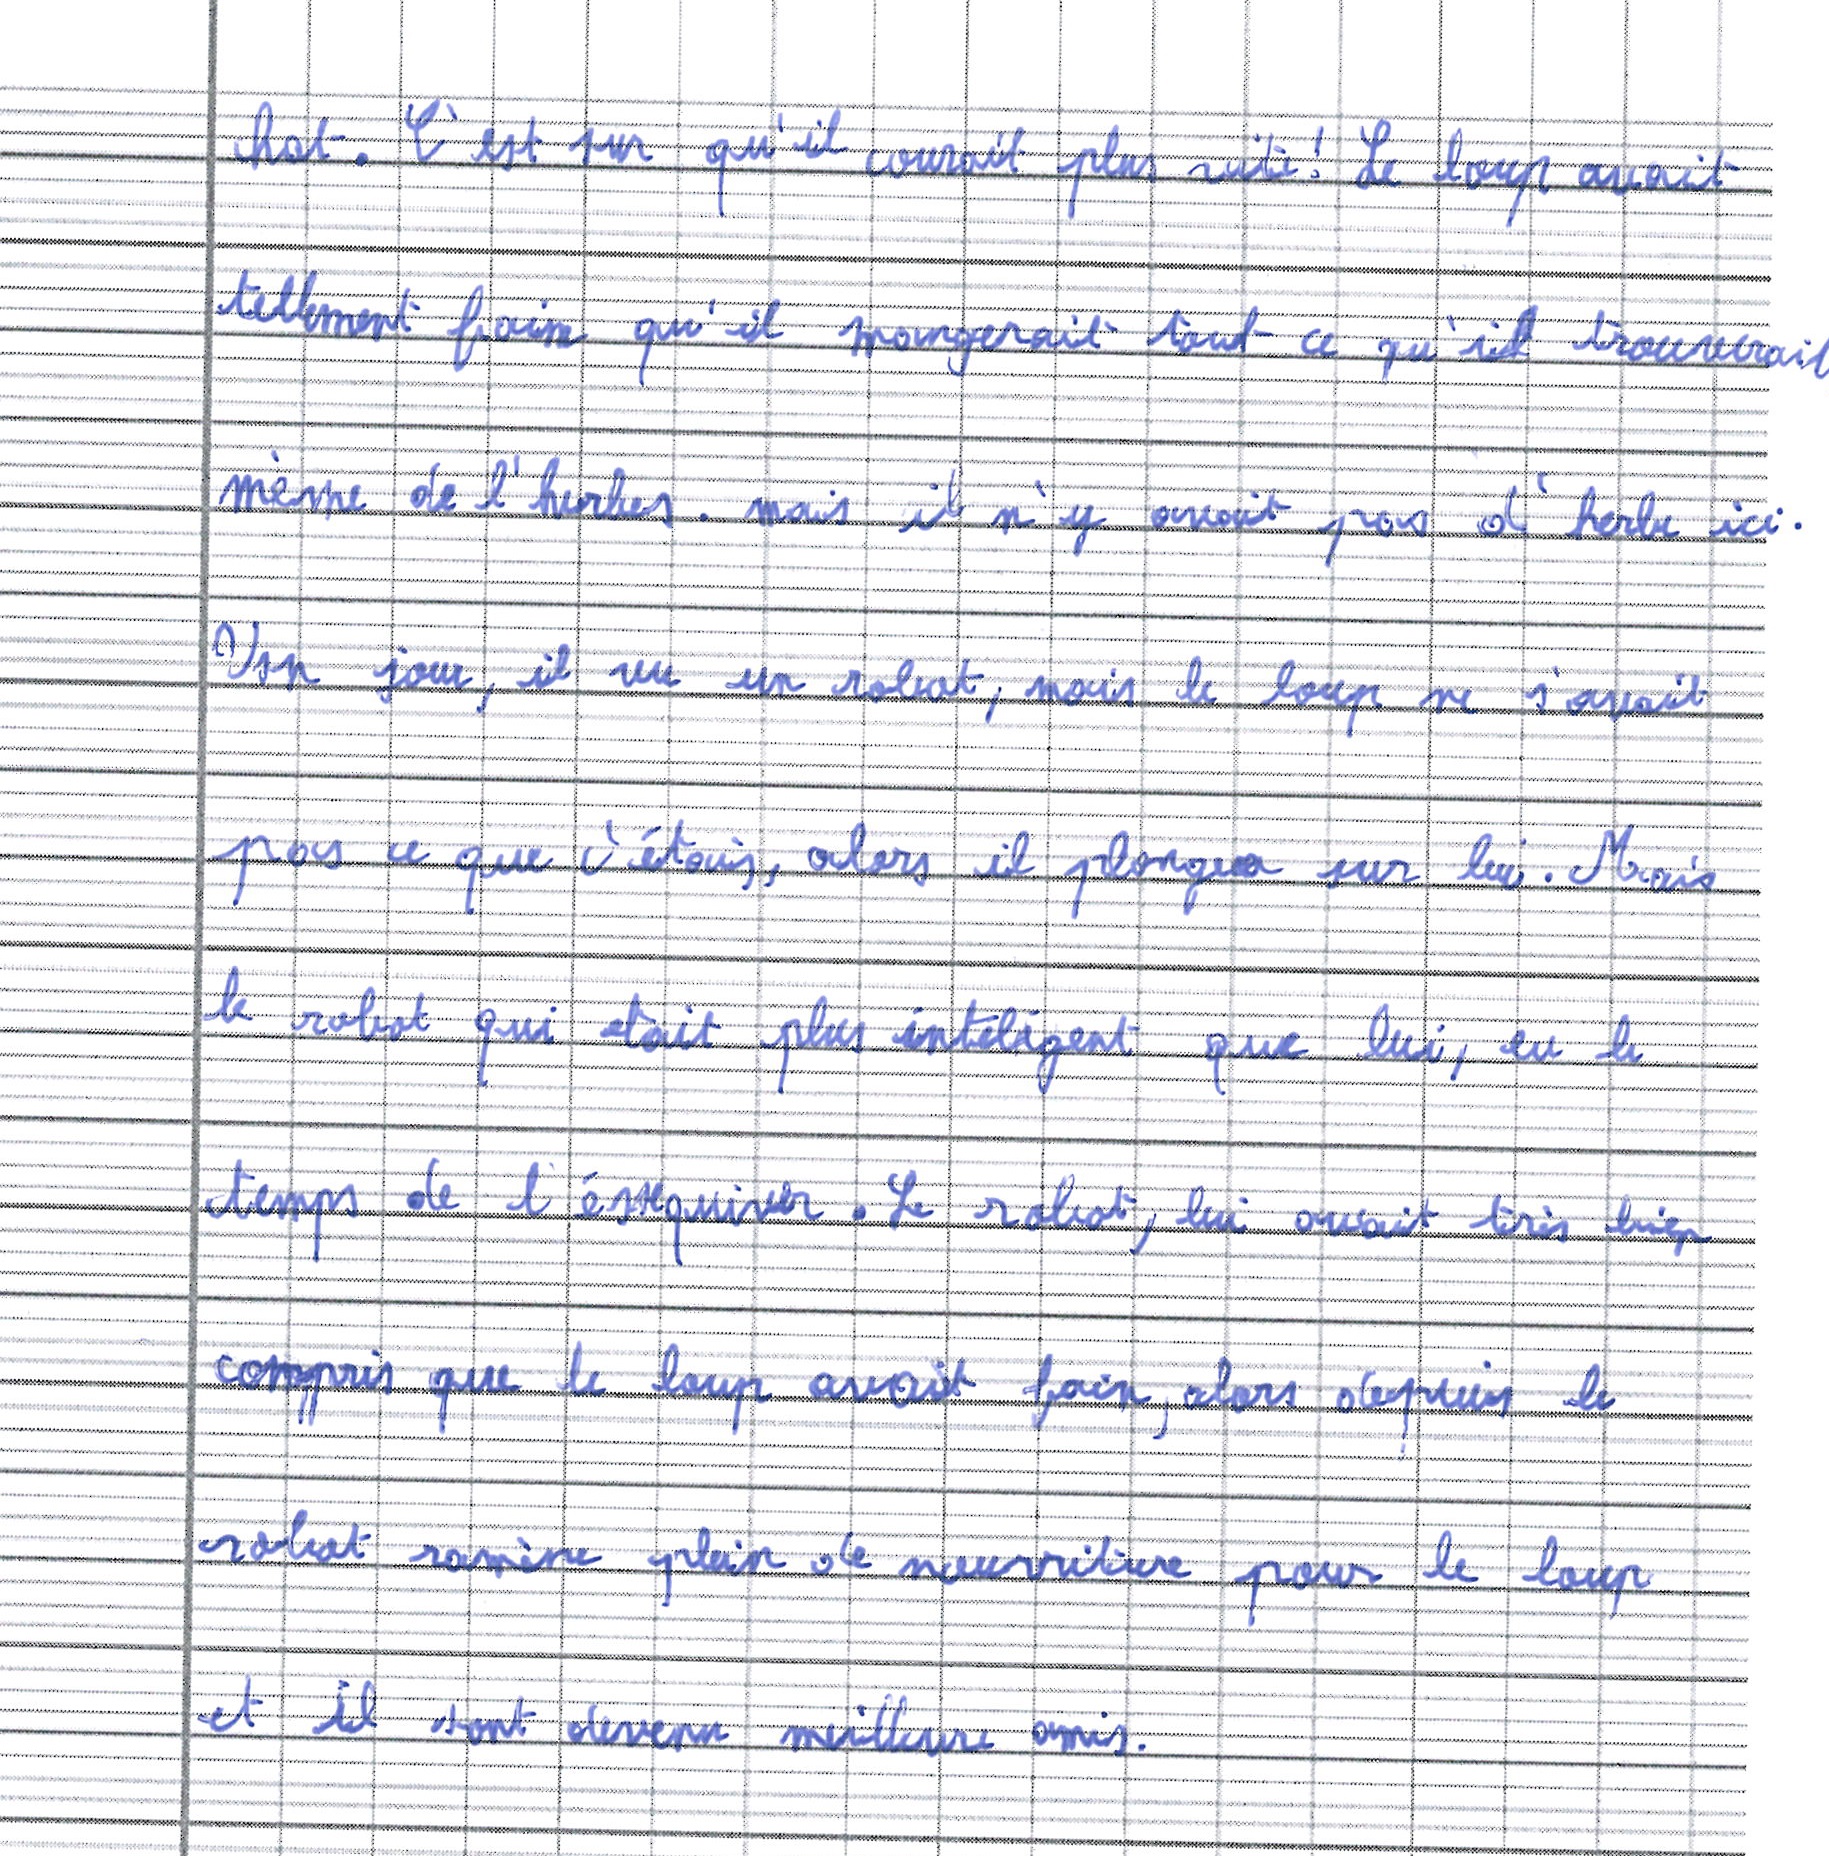 hat. C'est sur qu'il courait plus vite! Le loup avait
tellment faim qu'il mangerait tout ce qu'il trouverait
mème de l'herbes. mais il n'y avait pas d'herbe ici.
Un jour, il vu un robot, mais le loup ne s'avait
pas ce que c'étais, alors il plongea sur lui. Mais
le robot qui etait plus inteligent que lui, eu le
temps de l'ésquiver. Le robot, lui avait très bien
compris que le loup avait fain, alors depuis le
robot ramène plein de nourriture pour le loup
et il sont devenu meilleure amis.